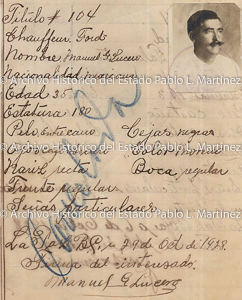 Título # 104
Chauffeur. Ford
Nombre Manuel G Lucero
Nacionalidad mexicana
Edad 35
Estatura 180
Pelo entrecano Cejas negras
Color moreno
Nariz recta Boca regular
Frente regular
Señas particulares
La Paz, B.C. a 29 de Oct de 1928.
Firma del interesado.
Manuel G Lucero
Cancelada
© Archivo Historico del Estado Pablo L. Martínez
© Archivo Historico del Estado Pablo L. Martínez
© Archivo Historico del Estado Pablo L. Martínez
© Archivo Historico del Estado Pablo L. Martínez